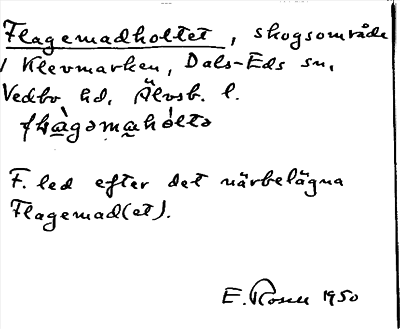 Flagemadholtet, skogsområde
i Klevmarken, Dals-Eds sn,
Vedbo hd, Älvsb. l.
F. led efter det närbelägna
Flagemad(et).
E. Rosell 1950